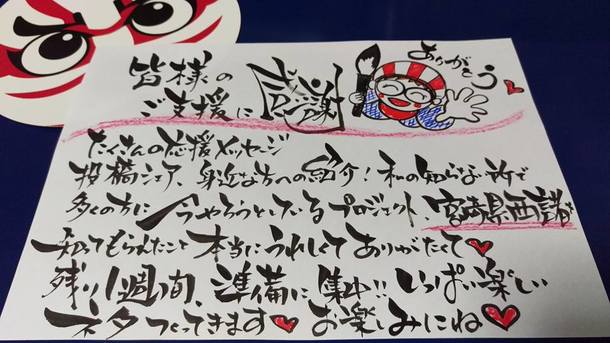 皆様の
ご支援に
感謝
ありがとう
たくさんの応援メッセージ
投稿シェア、身近な方への紹介！私の知らない所で
多くの方に今やろうとしているプロジェクト、宮崎県西諸を
知ってもらえたこと本当にうれしくてありがたくて
残り1週間、準備に集中!!いっぱい楽しい
ネタつくってきますお楽しみにね